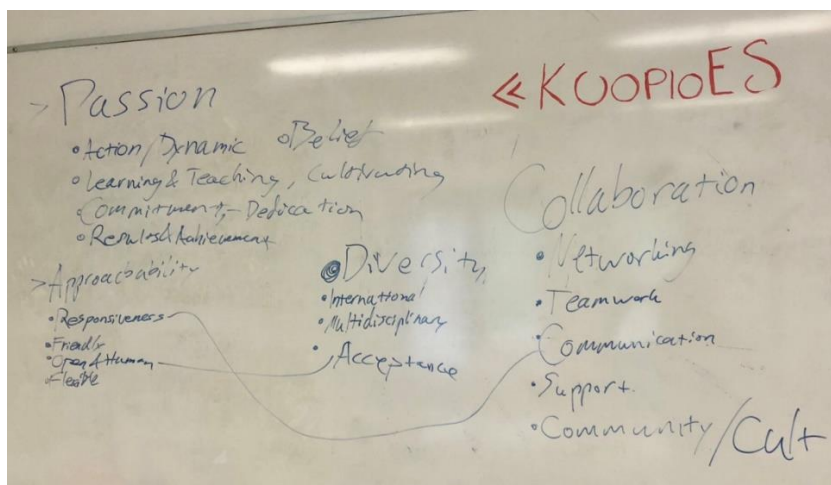 > Passion
• Action/Dynamic • Belief
• Learning & Teaching,
• Commitment - Dedication
• Results & Achievement
> Approachability
• Responsiveness
• Friendly
• Open & Human
• Flexible
• Diversity
• International
• Multidisciplinary
• Acceptance
« KUOPIOES
Collaboration
• Networking
• Teamwork
• Communication
• Support
• Community/Cult